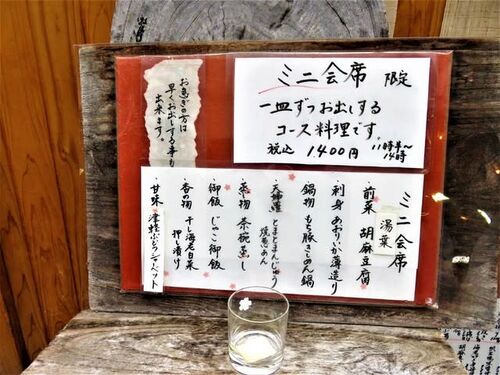 ミニ会席 限定
一皿ずつお出しする
コース料理です。
税込 1400円 11時半〜
14時
お急ぎの方は
早くお出しする事も
出来ます。
ミニ会席
湯葉
前菜 胡麻豆腐
刺身 あおりいか薄造り
鍋物 もち豚きのこ鍋
天婦羅 とまとまんじゅう
焼葱あん
蒸し物 茶碗蒸し
御飯 じゃこ御飯
香の物 干し海老白菜
押し漬け
甘味 津軽ぶどうシャーベット